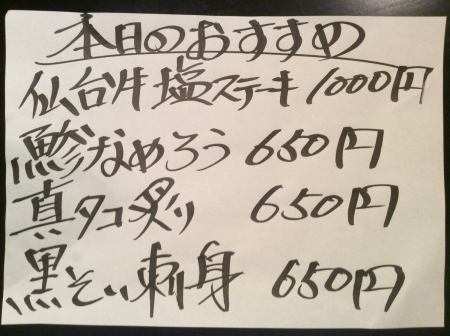 本日のおすすめ
仙台牛塩ステーキ 1000円
鯵なめろう 650円
真タコ炙り 650円
黒そい刺身 650円